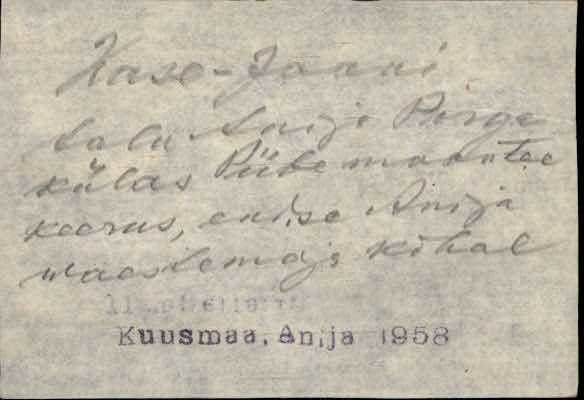 Kase-Jaani
talu Anija Pirgu
külas Piibe maantee
keerus, endise Anija
waestemaja kohal
Kuusmaa, Anija 1958